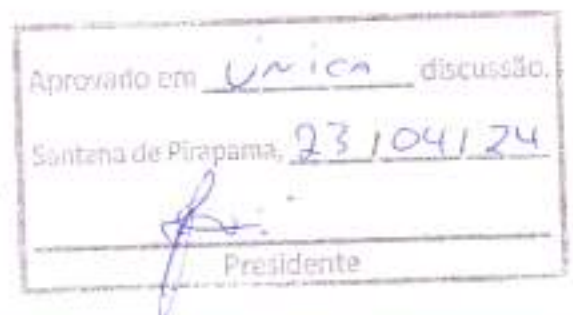 Aprovado em Única discussão.
Santana de Pirapama, 23/04/24
Presidente